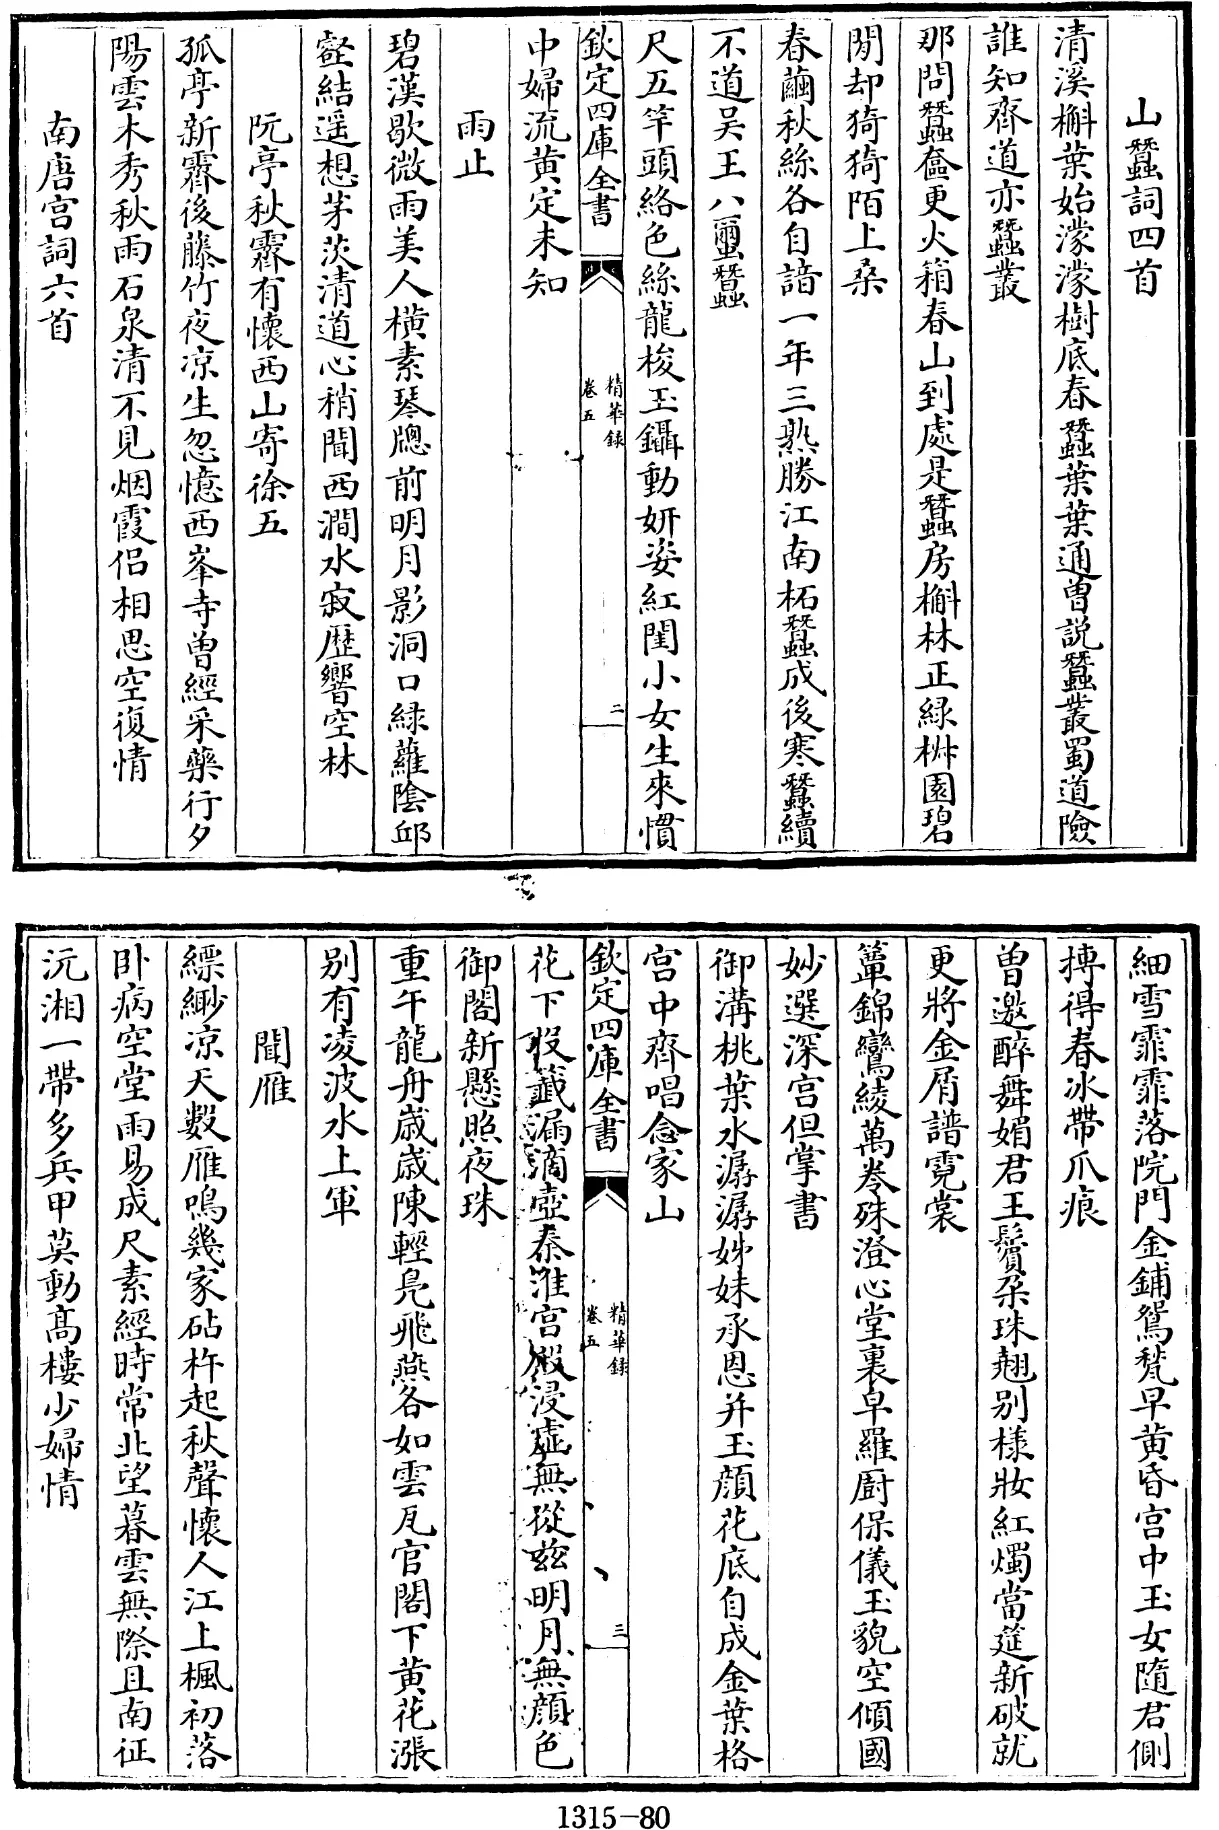 山蠶詞四首
清溪槲葉始濛濛樹底春蠶葉葉通曾説蠶叢蜀道險
誰知齊道亦蠶叢
那問蠶奩更火箱春山到處是蠶房槲林正綠椒園碧
閒却猗猗陌上桑
春繭秋絲各自諳一年三熟勝江南柘蠶成後寒蠶續
不道吴王八璽蠶
尺五竿頭絡色絲龍梭玉鑷動妍姿紅閨小女生來慣
欽定四庫全書
精華録
卷五
二
中婦流黄定未知
雨止
碧漢歇微雨美人横素琴牕前明月影洞口緑蘿陰邱
壑結遥想茅茨清道心稍聞西澗水寂歷響空林
阮亭秋霽有懷西山寄徐五
孤亭新霽後藤竹夜凉生忽憶西峯寺曾經采藥行夕
陽雲木秀秋雨石泉清不見烟霞侣相思空復情
南唐宫詞六首
細雪霏霏落院門金鋪鴛甃早黄昏宫中玉女隨君側
搏得春冰帶爪痕
曾邀醉舞媚君王鬢朶珠翹别様妝紅燭當筵新破就
更將金屑譜霓裳
簟錦鸞綾萬卷殊澄心堂裏皁羅厨保儀玉貌空傾國
妙選深宫但掌書
御溝桃葉水潺潺姊妹承恩并玉顔花底自成金葉格
宫中齊唱念家山
欽定四庫全書
精華録
卷五
三
花下收籤漏滴壺秦淮宫殿浸虚無從兹明月無顔色
御閣新懸照夜珠
重午龍舟歳歳陳輕鳬飛燕各如雲瓦官閣下黄花漲
别有凌波水上軍
聞雁
縹緲凉天數雁鳴幾家砧杵起秋聲懷人江上楓初落
卧病空堂雨易成尺素經時常北望暮雲無際且南征
沅湘一帶多兵甲莫動髙樓少婦情
1315-80